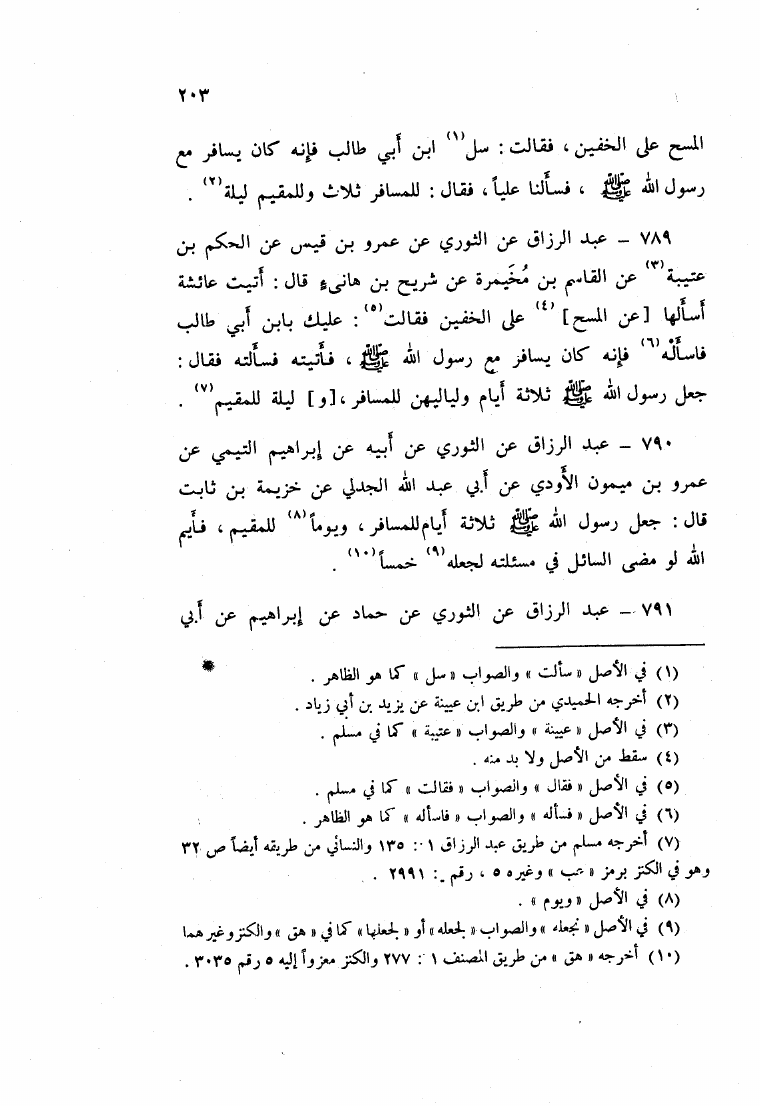 ٢٠٣
المسح على الخفين ، فقالت : سل(١) ابن أبي طالب فإنه كان يسافر مع
رسول الله ﷺ ، فسألنا علياً ، فقال : للمسافر ثلاث وللمقيم ليلة(٢) .
٧٨٩ – عبد الرزاق عن الثوري عن عمرو بن قيس عن الحكم بن
عتيبة(٣) عن القاسم بن مُخَيمرة عن شريح بن هانىء قال : أتيت عائشة
أسألها [عن المسح](٤) على الخفين فقالت(٥) : عليك بابن أبي طالب
فاسأَلْه(٦) فإنه كان يسافر مع رسول الله ﷺ ، فأتيته فسألته فقال :
جعل رسول الله ﷺ ثلاثة أيام ولياليهن للمسافر ، [و] ليلة للمقيم(٧) .
٧٩٠ – عبد الرزاق عن الثوري عن أبيه عن إبراهيم التيمي عن
عمرو بن ميمون الأَودي عن أبي عبد الله الجدلي عن خزيمة بن ثابت
قال : جعل رسول الله ﷺ ثلاثة أيام للمسافر ، ويوماً(٨) للمقيم ، فأيم
الله لو مضى السائل في مسئلته لجعله(٩) خمساً(١٠) .
٧٩١ – عبد الرزاق عن الثوري عن حماد عن إبراهيم عن أبي
(١) في الأصل « سألت » والصواب « سل » كما هو الظاهر .
(٢) أخرجه الحميدي من طريق ابن عيينة عن يزيد بن أبي زياد .
(٣) في الأصل « عيينة » والصواب « عتيبة » كما في مسلم .
(٤) سقط من الأصل ولا بد منه .
(٥) في الأصل « فقال » والصواب « فقالت » كما في مسلم .
(٦) في الأصل « فسأله » والصواب « فاسأله » كما هو الظاهر .
(٧) أخرجه مسلم من طريق عبد الرزاق ١ : ١٣٥ والنسائي من طريقه أيضاً ص ٣٢
وهو في الكنز برمز « عب » وغيره ٥ ، رقم : ٢٩٩١ .
(٨) في الأصل « ويوم » .
(٩) في الأصل « نجعله » والصواب « لجعله » أو « لجعلها » كما في « هق » والكنز وغيرهما
(١٠) أخرجه « هق » من طريق المصنف ١ : ٢٧٧ والكنز معزواً إليه ٥ رقم ٣٠٣٥ .